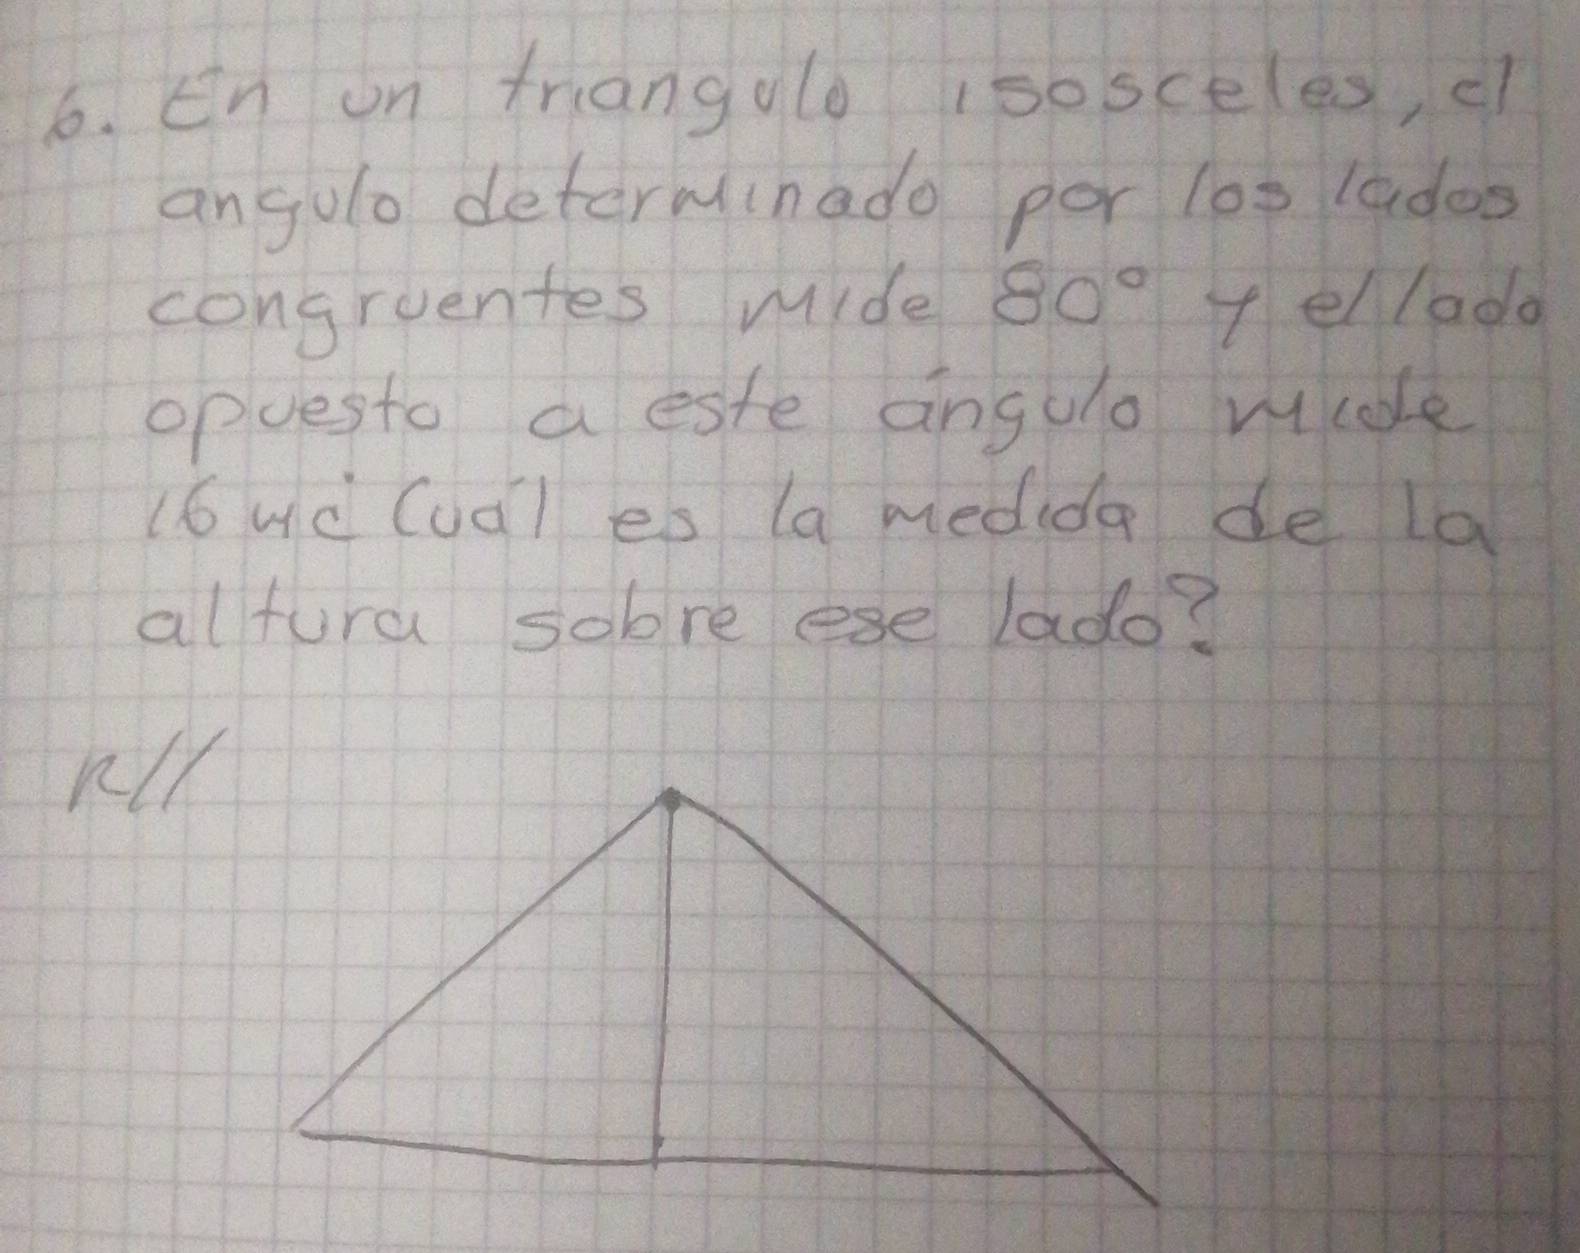 6. En un triangulo isosceles, el
angulo determinado por los lados
congruentes mide 80° y el lado
opuesto a este ángulo mide
16 m¿ Cuál es la medida de la
altura sobre ese lado?
R//